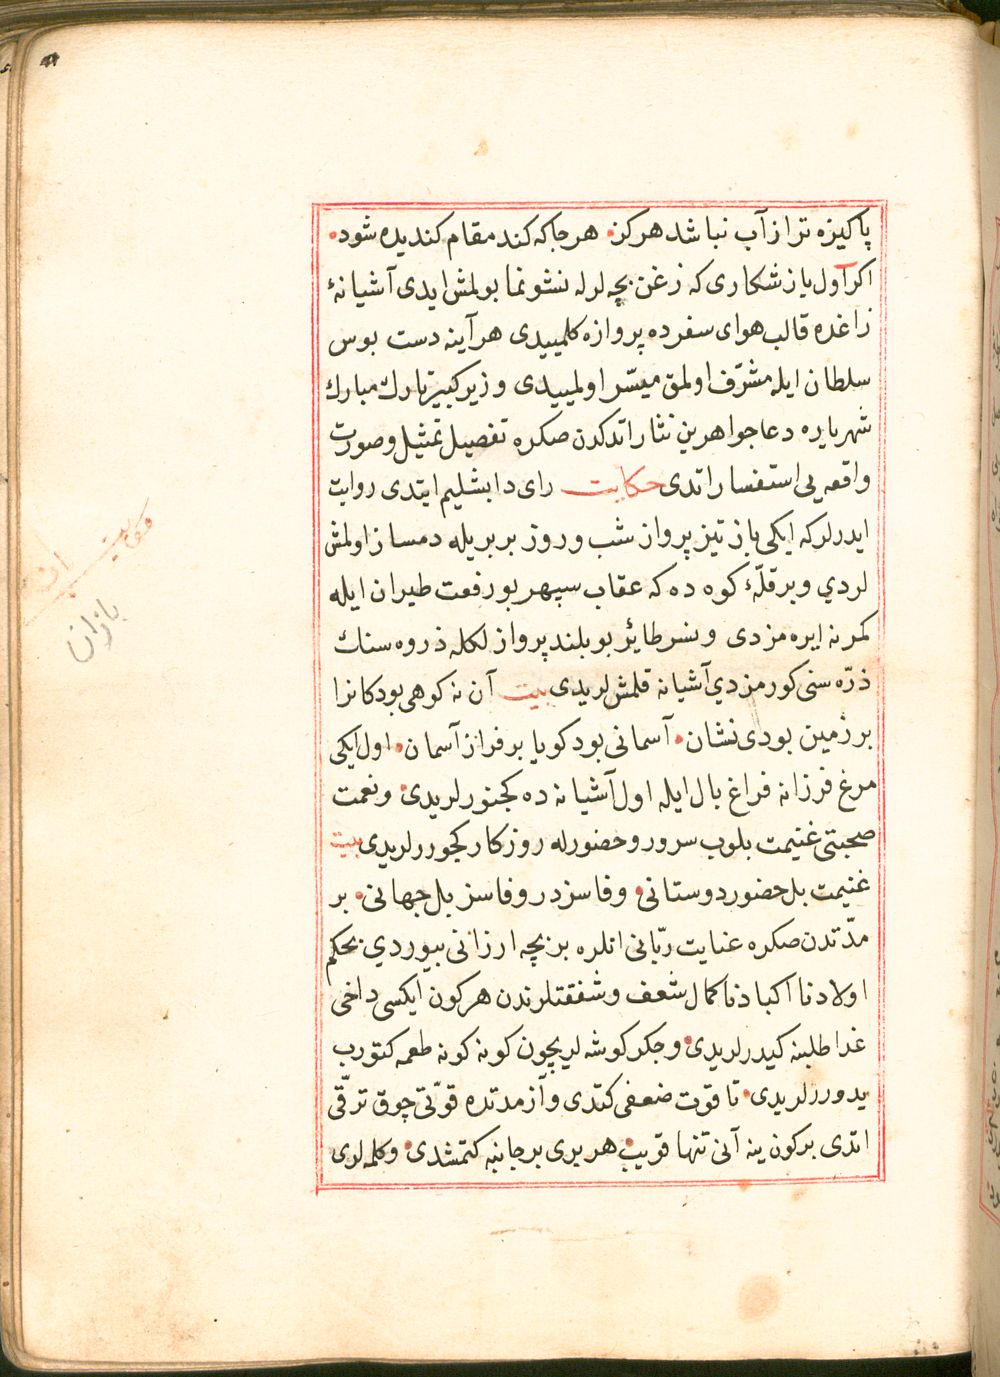 پاکیزه تر از آب نباشد هرکز هر جا که کند مقام کندیده شود
اکر اول باز شکاری که زغن بچه لرله نشو نما بولمش ایدی آشیانهٔ
زاغده قالب هوای سفرده پروازه کلمییدی هر آینه دست بوس
سلطان ایله مشرّف اولمق میسّر اولمییدی وزیر کبیر تبارك مبارك
شهریاره دعا جواهرین نثار اتدکدن صکره تفصیل تمثیل و صورت
واقعه یی استفسار اتدی حکایت رای دابشلیم ایتدی روایت
ایدرلر که ایکی باز تیز پرواز شب و روز بربریله دمساز اولمش
لردی و بر قلّهٔ کوه ده که عقاب سپهر بو رفعت طیران ایله
کمرنه ایره مزدی و نسر طائر بو بلند پروازلکله ذروه سنك
ذرّه سنی کورمزدی آشیانه قلمش لریدی بیت آن نه کوهی بود کانرا
بر زمین بودی نشان آسمانی بود کویا بر فراز آسمان اول ایکی
مرغ فرزانه فراغ بال ایله اول آشیانه ده کجنورلریدی و نعمت
صحبتی غنیمت بلوب سرور و حضورله روزکار کجوررلریدی بیت
غنیمت بل حضور دوستانی وفاسزدر وفاسز بل جهانی بر
مدّتدن صکره عنایت ربّانی انلره بر بچه ارزانی بیوردی بحکم
اولادنا اکبادنا کمال شعف و شفقتلرندن هر کون ایکسی داخی
غدا طلبنه کیدرلریدی و جکر کوشه لریچون کونه کونه طعمه کتورب
یدوررلریدی تا قوت ضعفی کتدی و آز مدتده قوّتی چوق ترقّی
اتدی بر کون ینه آنی تنها قویب هر بری بر جانبه کتمشدی و کلمه لری
حکایت
بازان